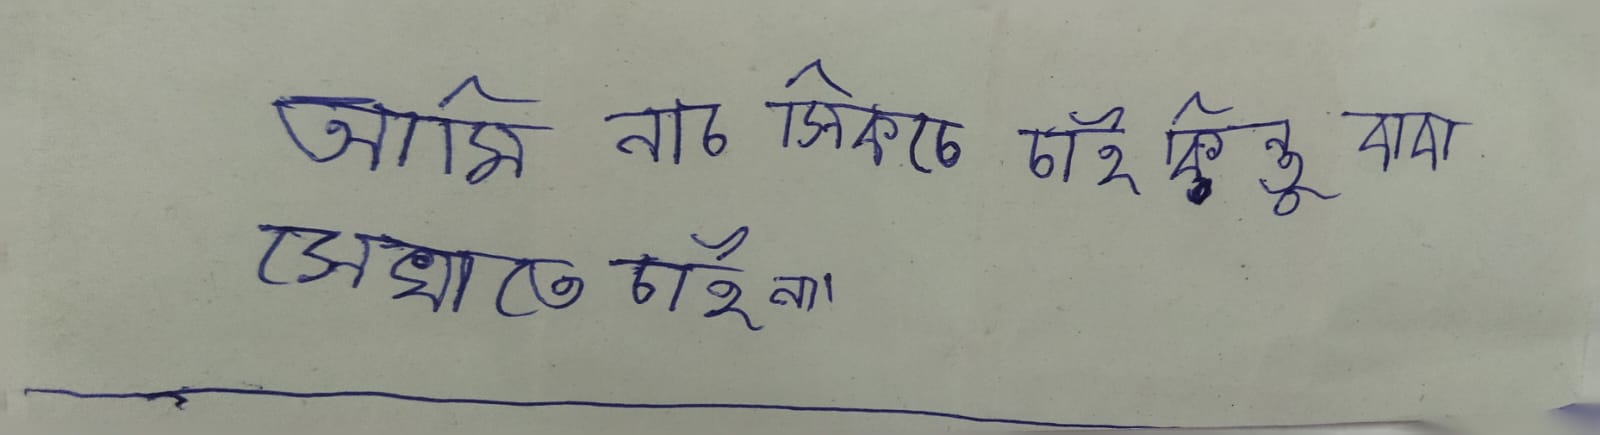 আমি নাচ সিকতে চাই কিন্তু বাবা
সেখাতে চাই না।